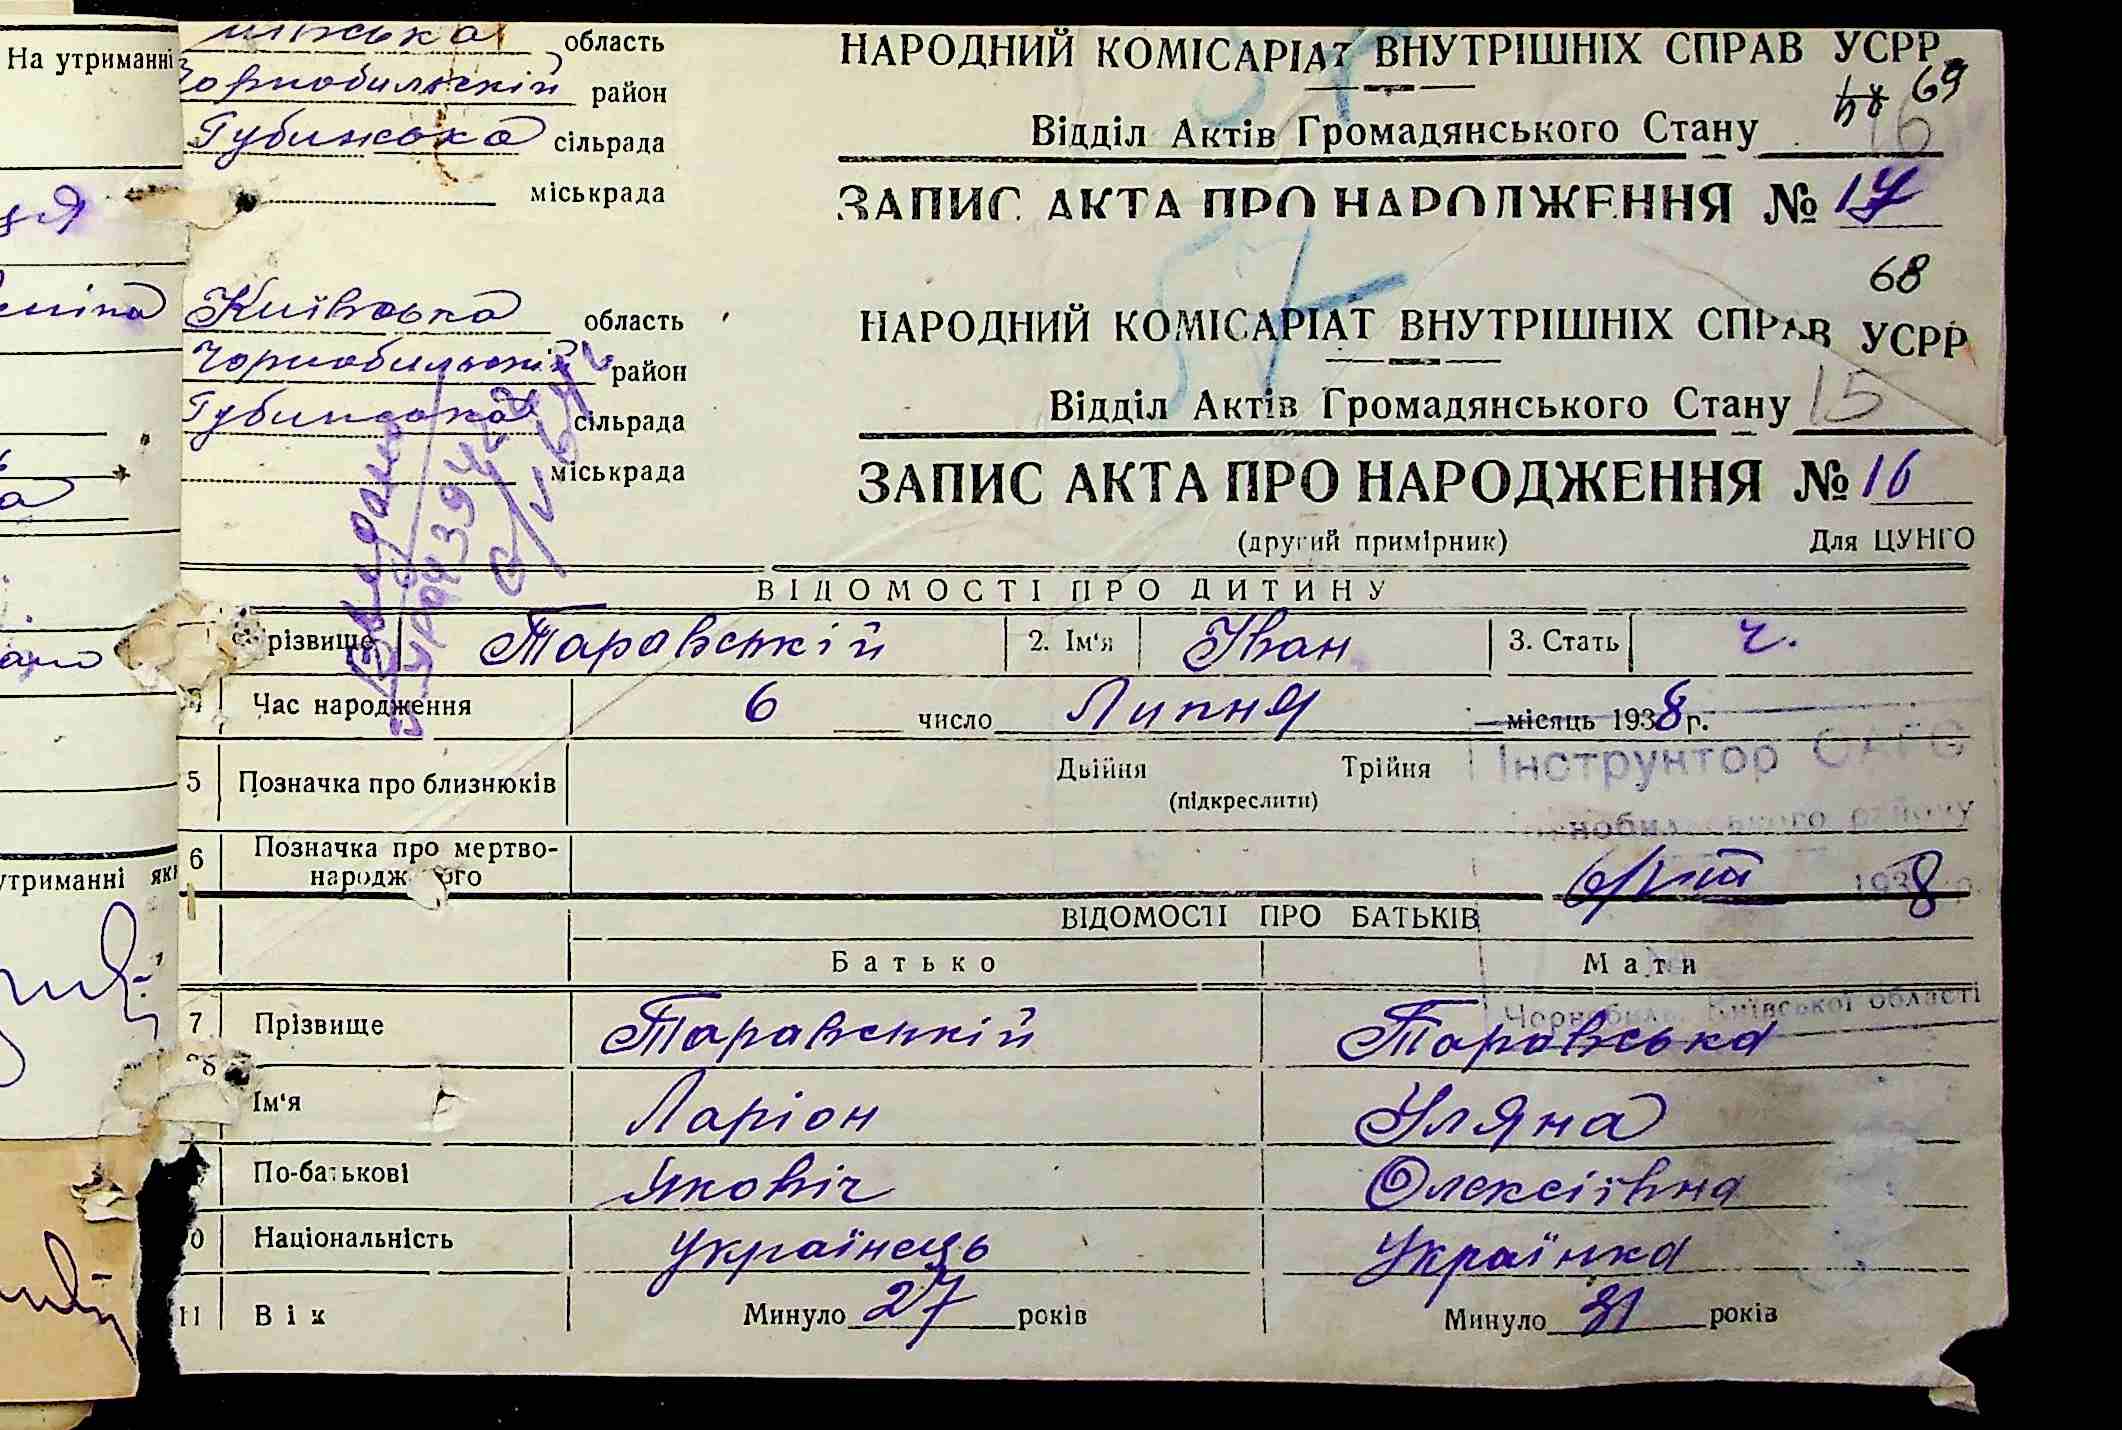 На утриманні
область
Чорнобильскій район
Губинська сільрада
міськрада
НАРОДНИЙ КОМІСАРІАТ ВНУТРІШНІХ СПРАВ УСРР
69
Відділ Актів Громадянського Стану 16
ЗАПИС АКТА ПРО НАРОДЖЕННЯ № 17
57
68
Київська область
Чорнобильскій район
Губинська сільрада
міськрада
НАРОДНИЙ КОМІСАРІАТ ВНУТРІШНІХ СПРАВ УСРР
Відділ Актів Громадянського Стану 15
ЗАПИС АКТА ПРО НАРОДЖЕННЯ № 16
(другий примірник) Для ЦУНГО
ВІДОМОСТІ ПРО ДИТИНУ
різвище Таравській 2. Ім'я Іван 3. Стать ч.
Час народження 6 число Липня місяць 1938 р.
5 Позначка про близнюків Двійня Трійня
(підкреслити)
Інструктор ОАГС
6 Позначка про мертво-
народженого
1938
утриманні які
ВІДОМОСТІ ПРО БАТЬКІВ
Батько Мати
Київської області
7 Прізвище Таравській Таравська
8 Ім'я Ларіон Уляна
По-батькові Яковіч Олексіївна
Національність Українець Українка
11 Вік Минуло 27 років Минуло 31 років